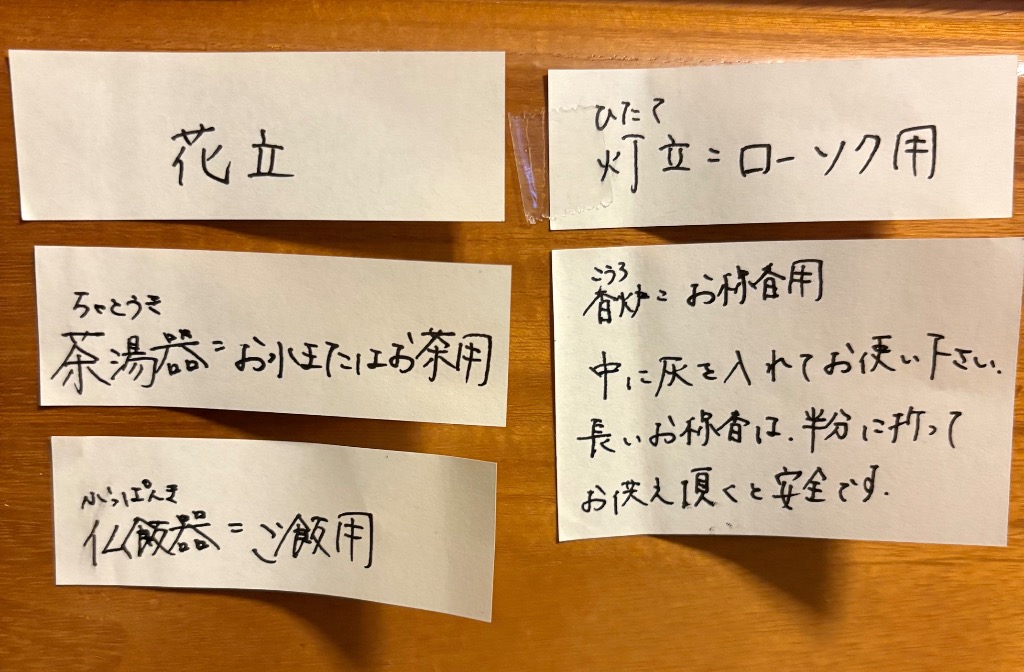 花立
ちゃとうき
茶湯器=お水またはお茶用
ぶっぱんき
仏飯器=ご飯用
ひたて
灯立=ローソク用
こうろ
香炉=お線香用
中に灰を入れてお使い下さい.
長いお線香は、半分に折って
お供え頂くと安全です.